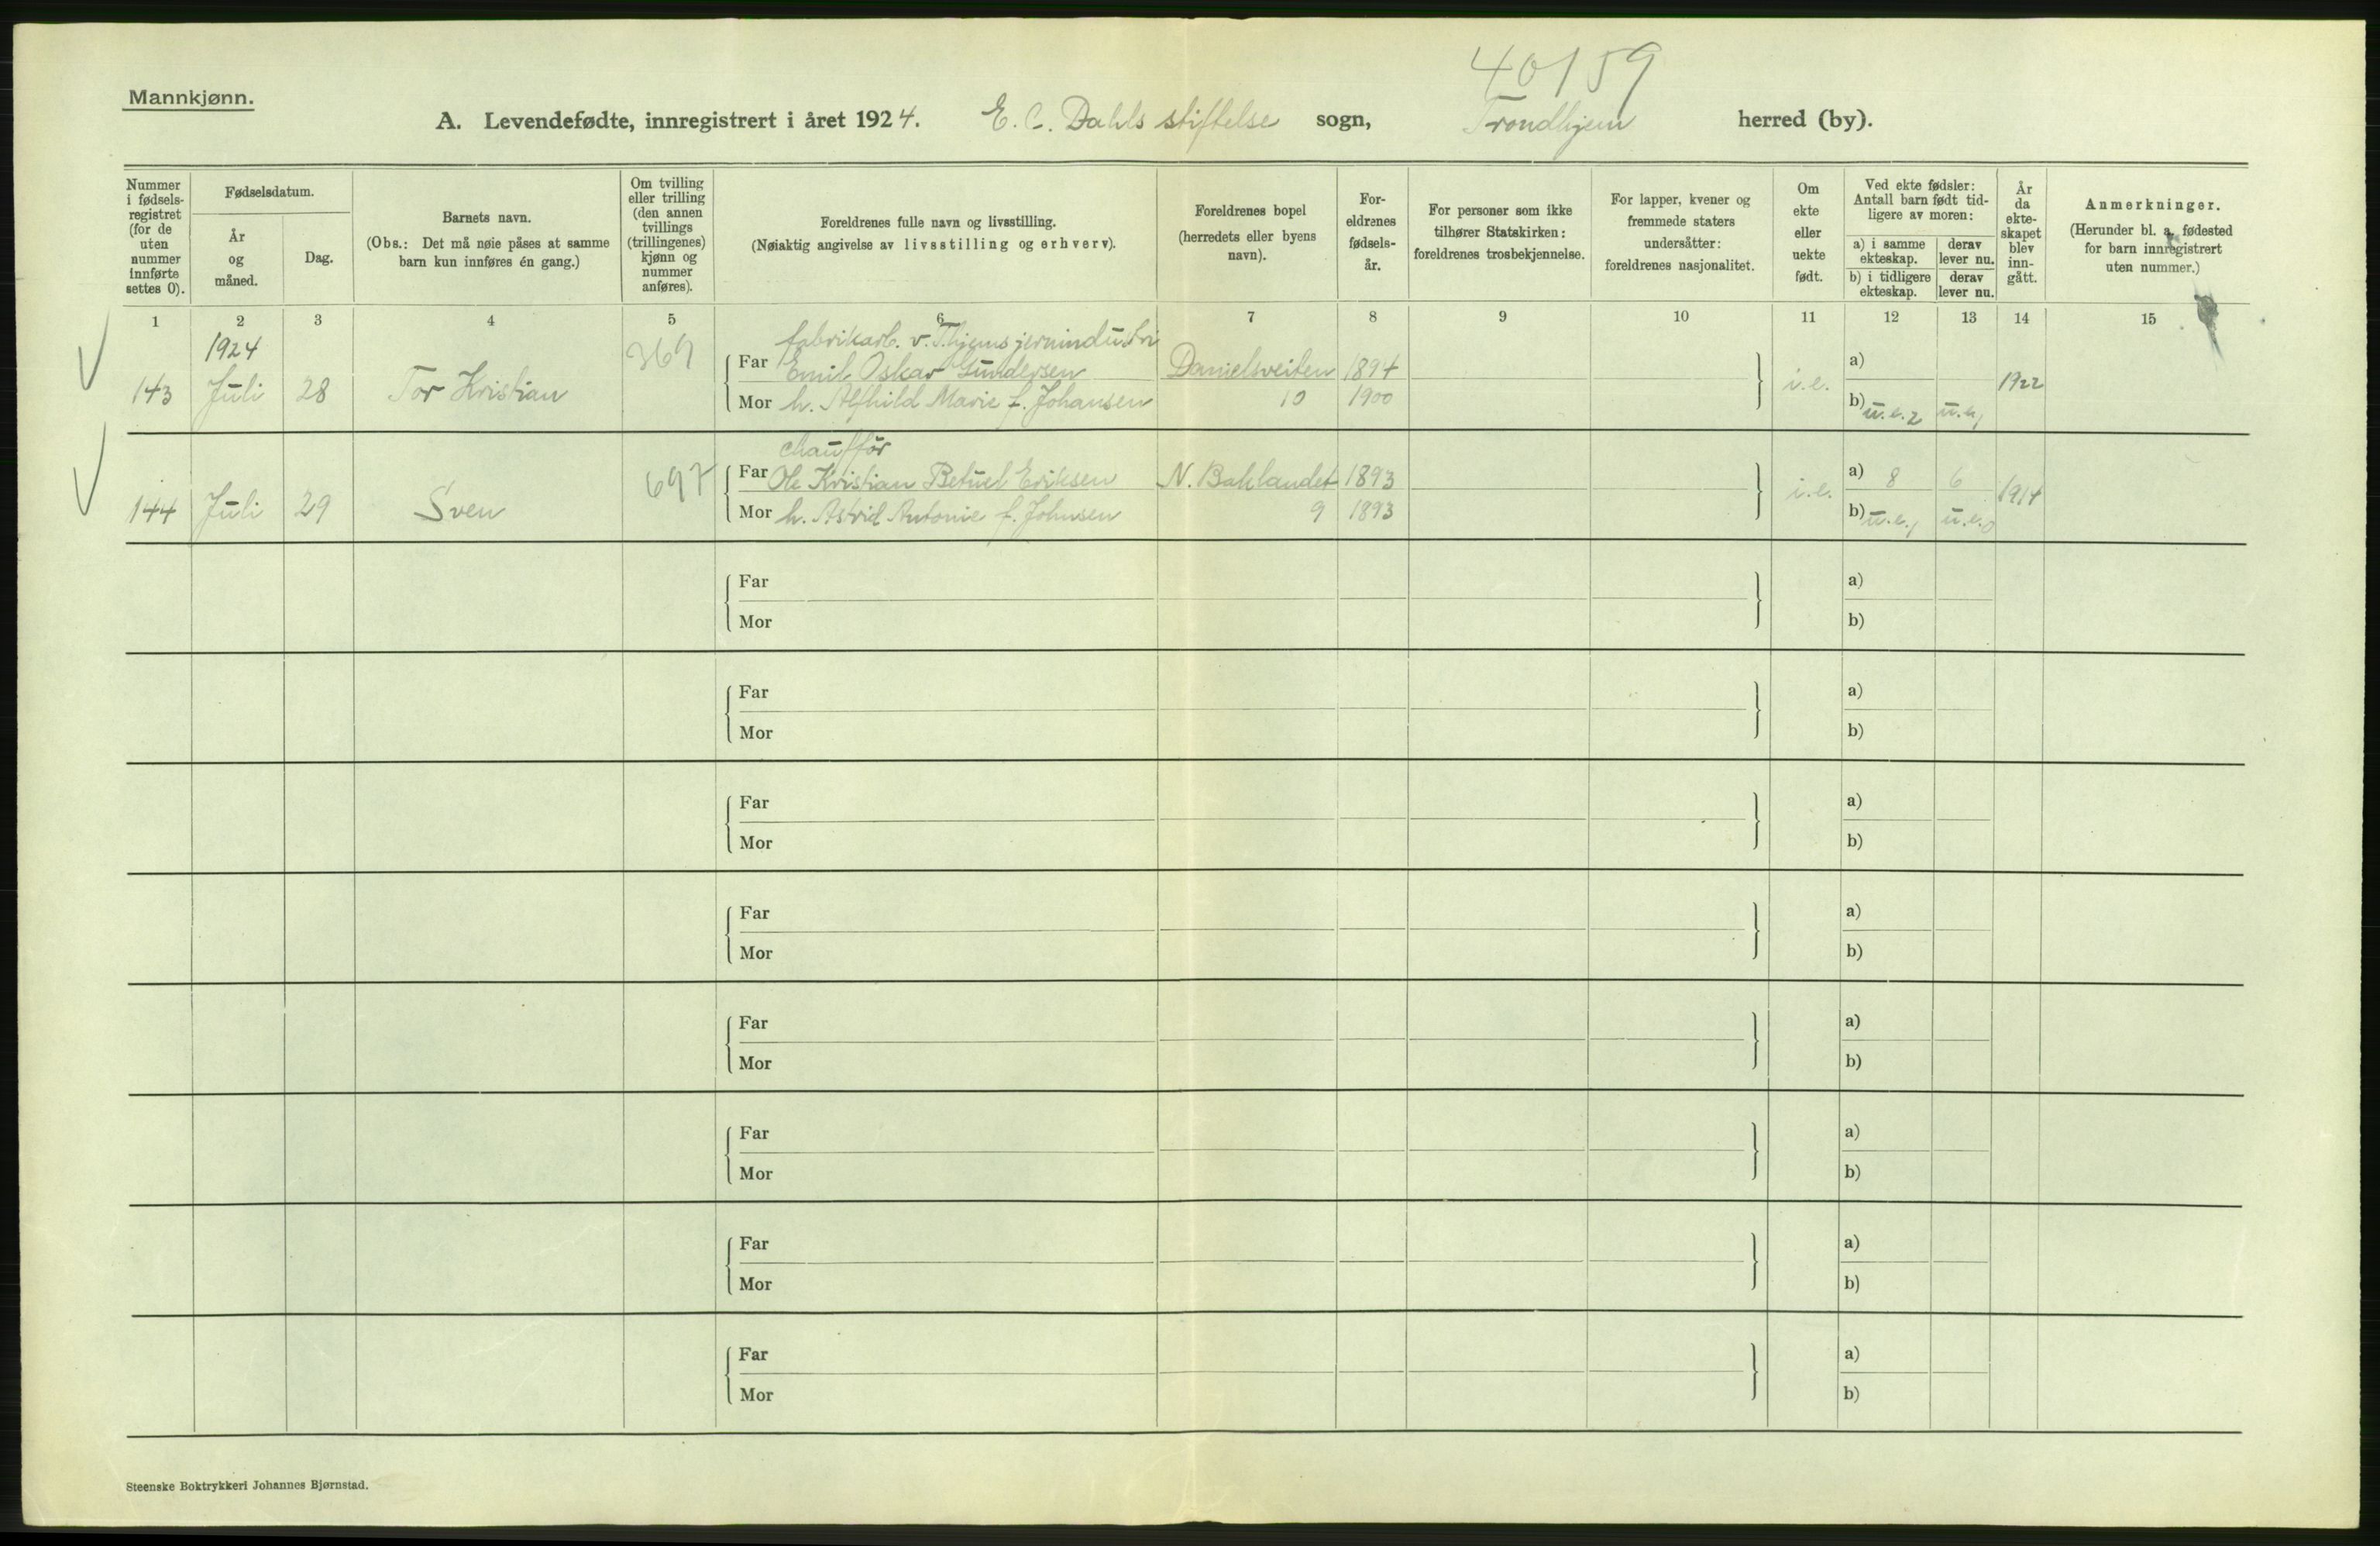 40159
Mannkjønn.
A. Levendefødte, innregistrert i året 1924. E. C. Dahls stiftelse sogn, Trondhjem herred (by).
Nummer i fødsels-registret (for de uten nummer innførte settes 0).
Fødselsdatum.
År og måned.
Dag.
Barnets navn.
(Obs.: Det må nøie påses at samme barn kun innføres én gang.)
Om tvilling eller trilling (den annen tvillings (trillingenes) kjønn og nummer anføres).
Foreldrenes fulle navn og livsstilling.
(Nøiaktig angivelse av livsstilling og erhverv).
Foreldrenes bopel (herredets eller byens navn).
For-eldrenes fødsels-år.
For personer som ikke tilhører Statskirken: foreldrenes trosbekjennelse.
For lapper, kvener og fremmede staters undersåtter: foreldrenes nasjonalitet.
Om ekte eller uekte født.
Ved ekte fødsler: Antall barn født tid-ligere av moren:
a) i samme ekteskap. derav lever nu.
b) i tidligere ekteskap. derav lever nu.
År da ekte-skapet blev inn-gått.
Anmerkninger.
(Herunder bl. a. fødested for barn innregistrert uten nummer.)
1 2 3 4 5 6 7 8 9 10 11 12 13 14 15
1924 369 fabrikarb. v. T.hjems jernindustri
Far Emil Oskar Gundersen Danielsveiten 1894 a)
143 Juli 28 Tor Kristian i.e. 1922
Mor h. Alfhild Marie f. Johansen 10 1900 b) u.e. 2 u.e. 1
chauffør
697 Far Ole Kristian Betuel Eriksen N. Baklandet 1893 a) 8 6
144 Juli 29 Sven i.e. 1914
Mor h. Astrid Antonie f. Johnsen 9 1893 b) u.e. 1 u.e. 0
Far a)
Mor b)
Far a)
Mor b)
Far a)
Mor b)
Far a)
Mor b)
Far a)
Mor b)
Far a)
Mor b)
Far a)
Mor b)
Far a)
Mor b)
Steenske Boktrykkeri Johannes Bjørnstad.